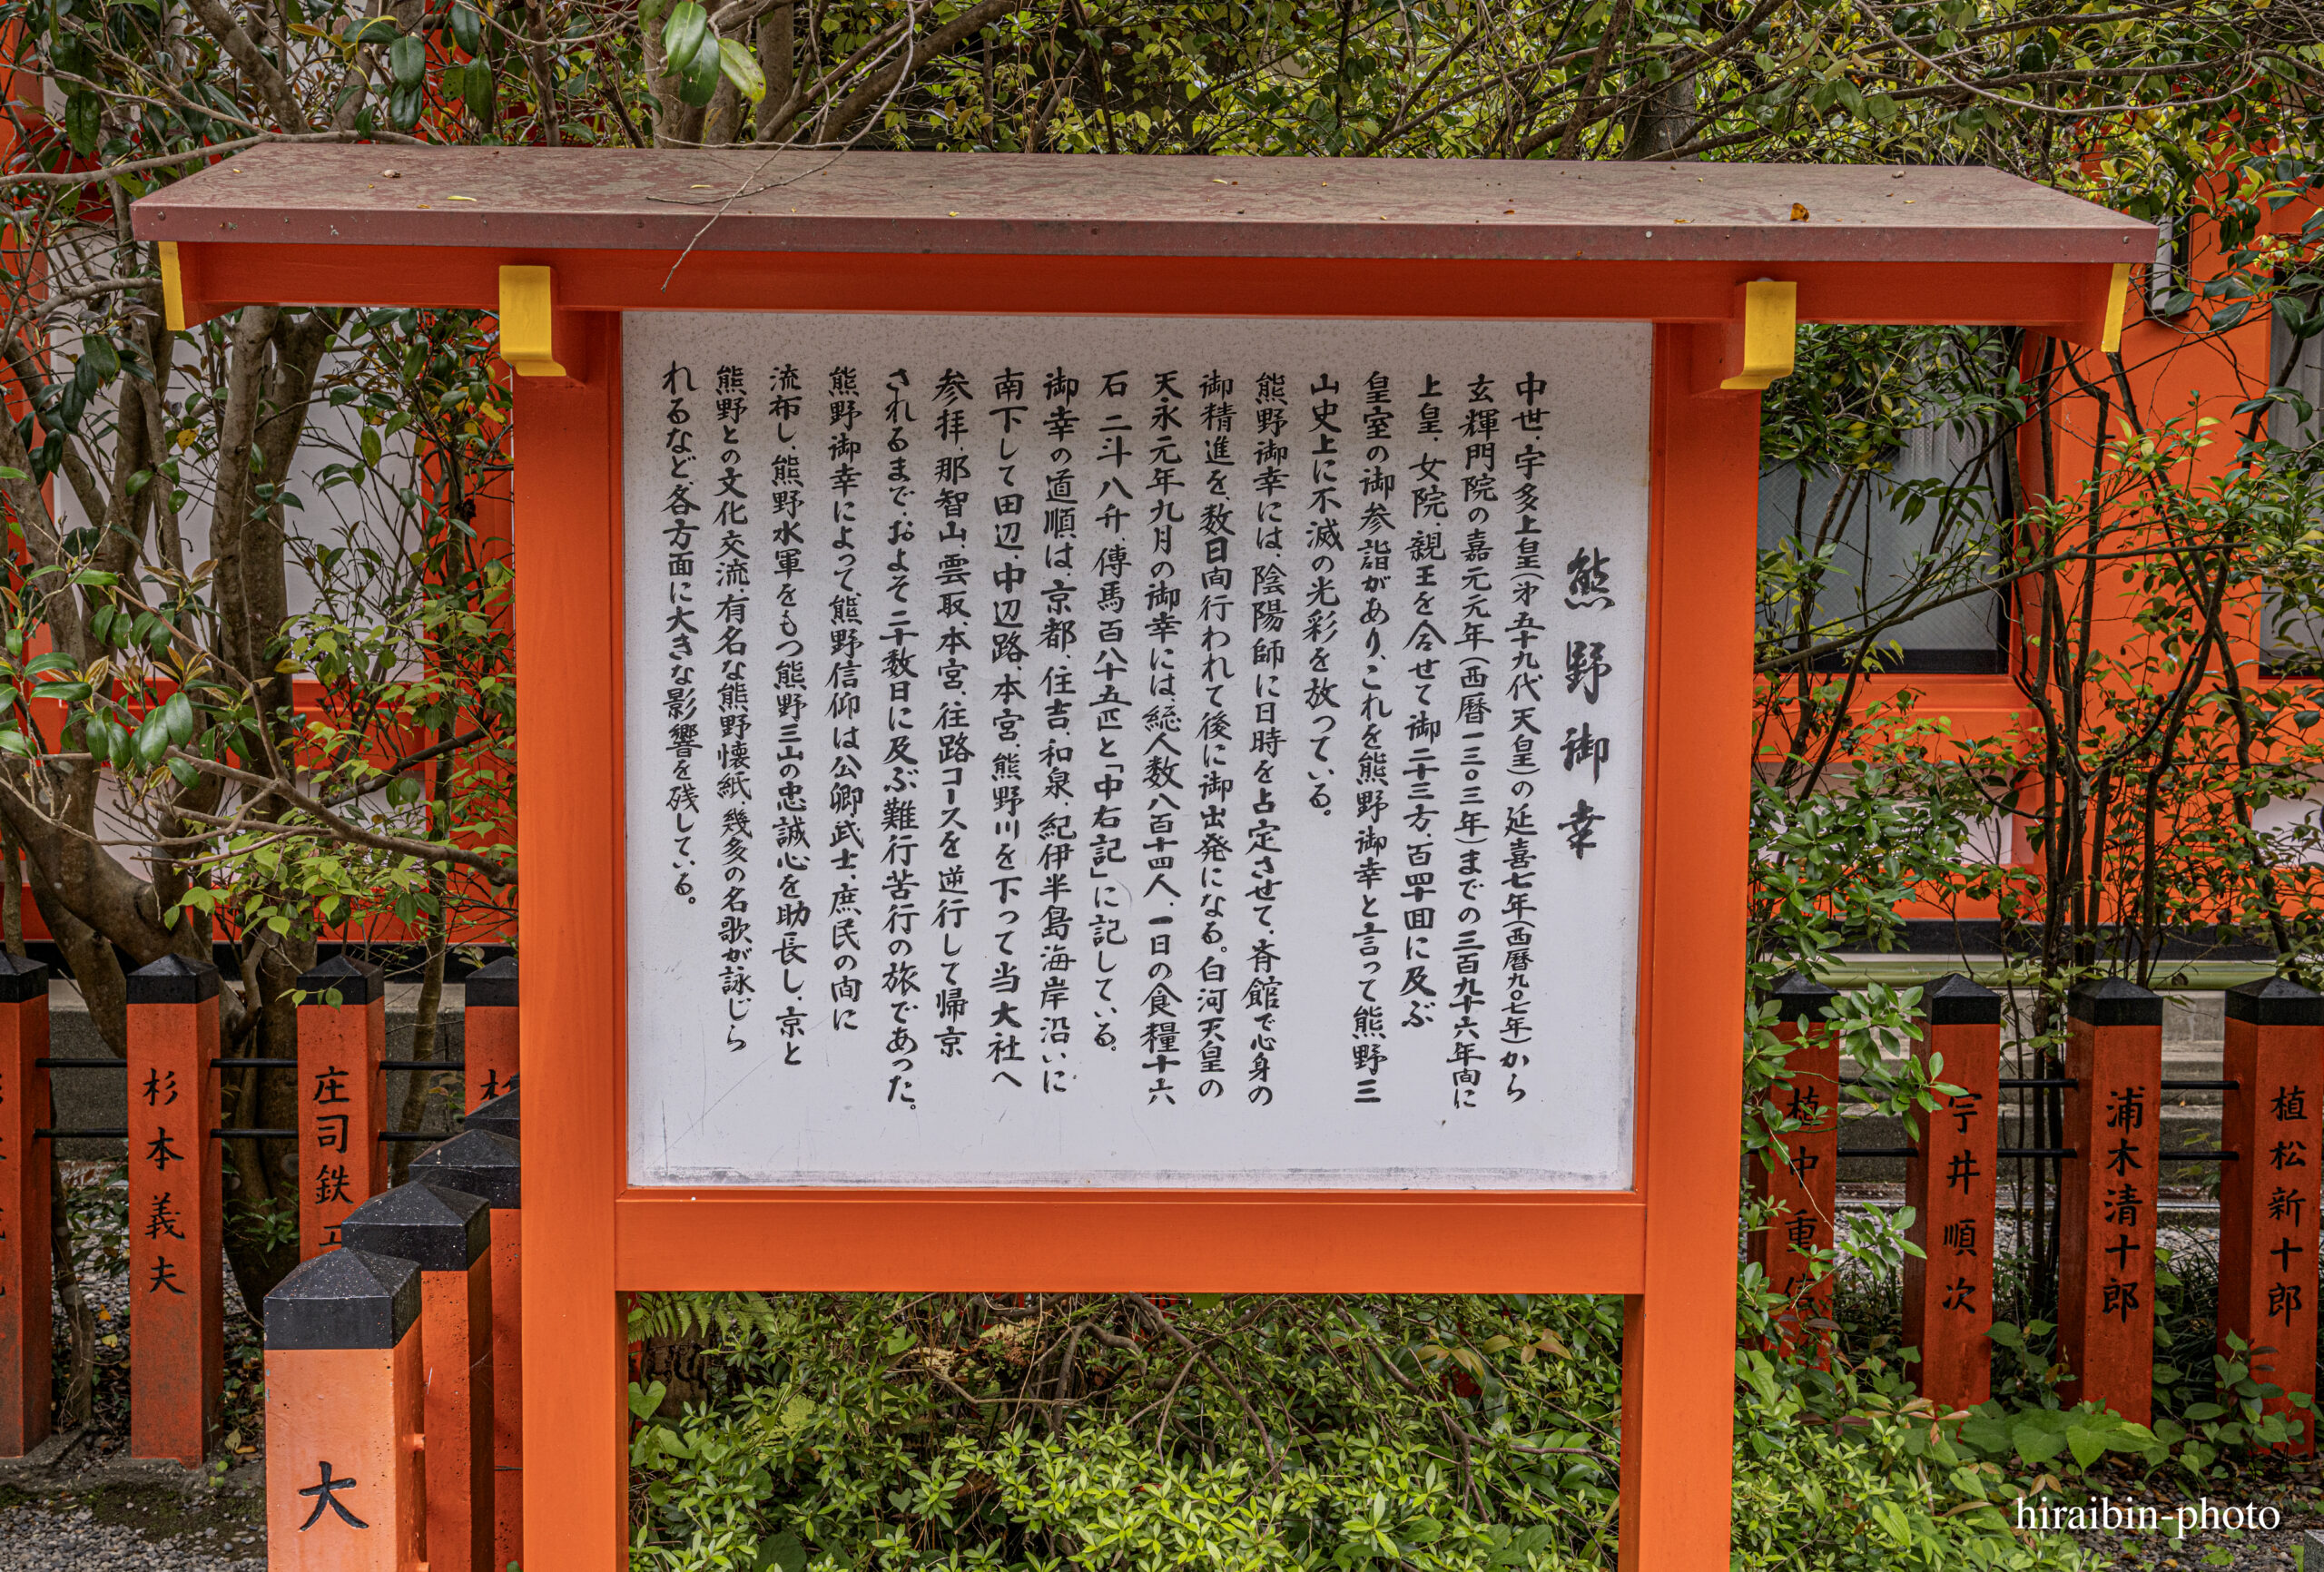 熊野御幸
中世、宇多上皇(㐧五十九代天皇)の延喜七年(西暦九〇七年)から
玄輝門院の嘉元元年(西暦一三〇三年)までの三百九十六年間に
上皇、女院、親王を合せて御二十三方、百四十回に及ぶ
皇室の御参詣があり、これを熊野御幸と言って熊野三
山史上に不滅の光彩を放っている。
熊野御幸には、陰陽師に日時を占定させて、斉館で心身の
御精進を、数日間行われて後に御出発になる。白河天皇の
天永元年九月の御幸には総人数八百十四人、一日の食糧十六
石二斗八升、傳馬百八十五匹と「中右記」に記している。
御幸の道順は、京都、住吉、和泉、紀伊半島海岸沿いに
南下して田辺、中辺路、本宮、熊野川を下って当大社へ
参拝、那智山、雲取、本宮、往路コースを逆行して帰京
されるまで、およそ二十数日に及ぶ難行苦行の旅であった。
熊野御幸によって、熊野信仰は公卿、武士、庶民の間に
流布し、熊野水軍をもつ熊野三山の忠誠心を助長し、京と
熊野との文化交流、有名な熊野懐紙、幾多の名歌が詠じら
れるなど、各方面に大きな影響を残している。
植松新十郎
浦木清十郎
宇井順次
植中重
庄司鉄
杉本義夫
大
hiraibin-photo